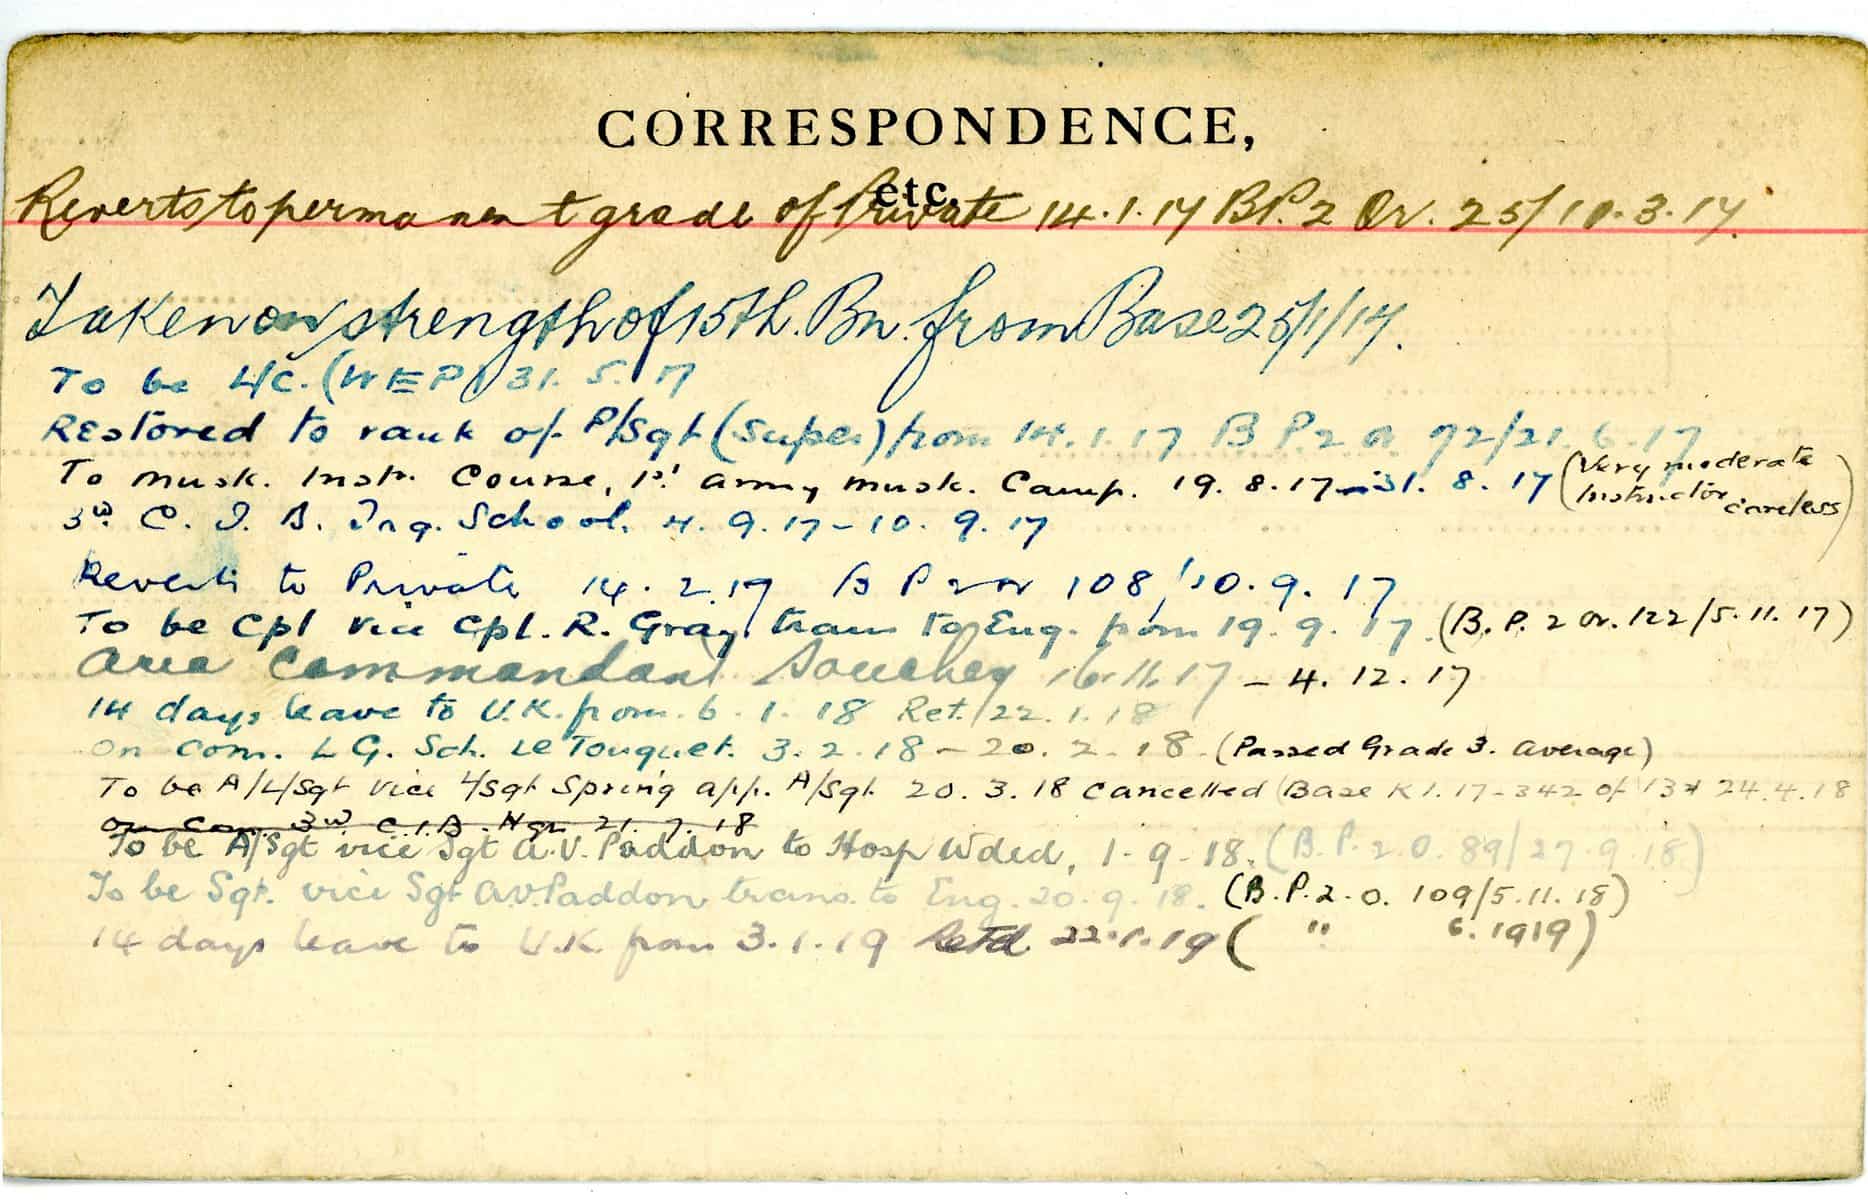 CORRESPONDENCE,
etc.
Reverts to permanent grade of Private 14.1.17 B.P.2 Or. 25/10.3.17.
Taken on strength of 15th. Bn. from Base 25/1/17.
To be L/C. (WEP) 31.5.17
Restored to rank of P/Sgt (Super) from 14.1.17 B P 2 Or 72/21.6.17
To Musk. Instr. Course, 1st Army Musk. Camp. 19.8.17 - 31.8.17 (Very moderate Instructor careless)
3rd C.I.B. Trg. School. 4.9.17 - 10.9.17
Reverts to Private 14.2.17 B P 2 Or 108/10.9.17
To be Cpl vice Cpl. R. Gray, trans to Eng. from 19.9.17. (B.P. 2 Or. 122/5.11.17)
Area Commandant Souchez 16.11.17 - 4.12.17
14 days leave to U.K. from 6.1.18 Ret. 22.1.18
On com. L G. Sch. Le Touquet. 3.2.18 - 20.2.18. (Passed Grade 3. Average)
To be A/L/Sgt vice L/Sgt Spring app. A/Sgt. 20.3.18 Cancelled (Base K1.17-342 of 24.4.18
On Com. 3rd C.I.B. Hqrs 21.7.18
To be A/Sgt vice Sgt A.V. Paddon to Hosp Wded, 1-9-18. (B.P.2.O. 89/27.9.18)
To be Sgt. vice Sgt A.V. Paddon trans. to Eng. 20.9.18. (B.P.2.O. 109/5.11.18)
14 days leave to U.K. from 3.1.19 Retd 22.1.19 ( " 6.1919)